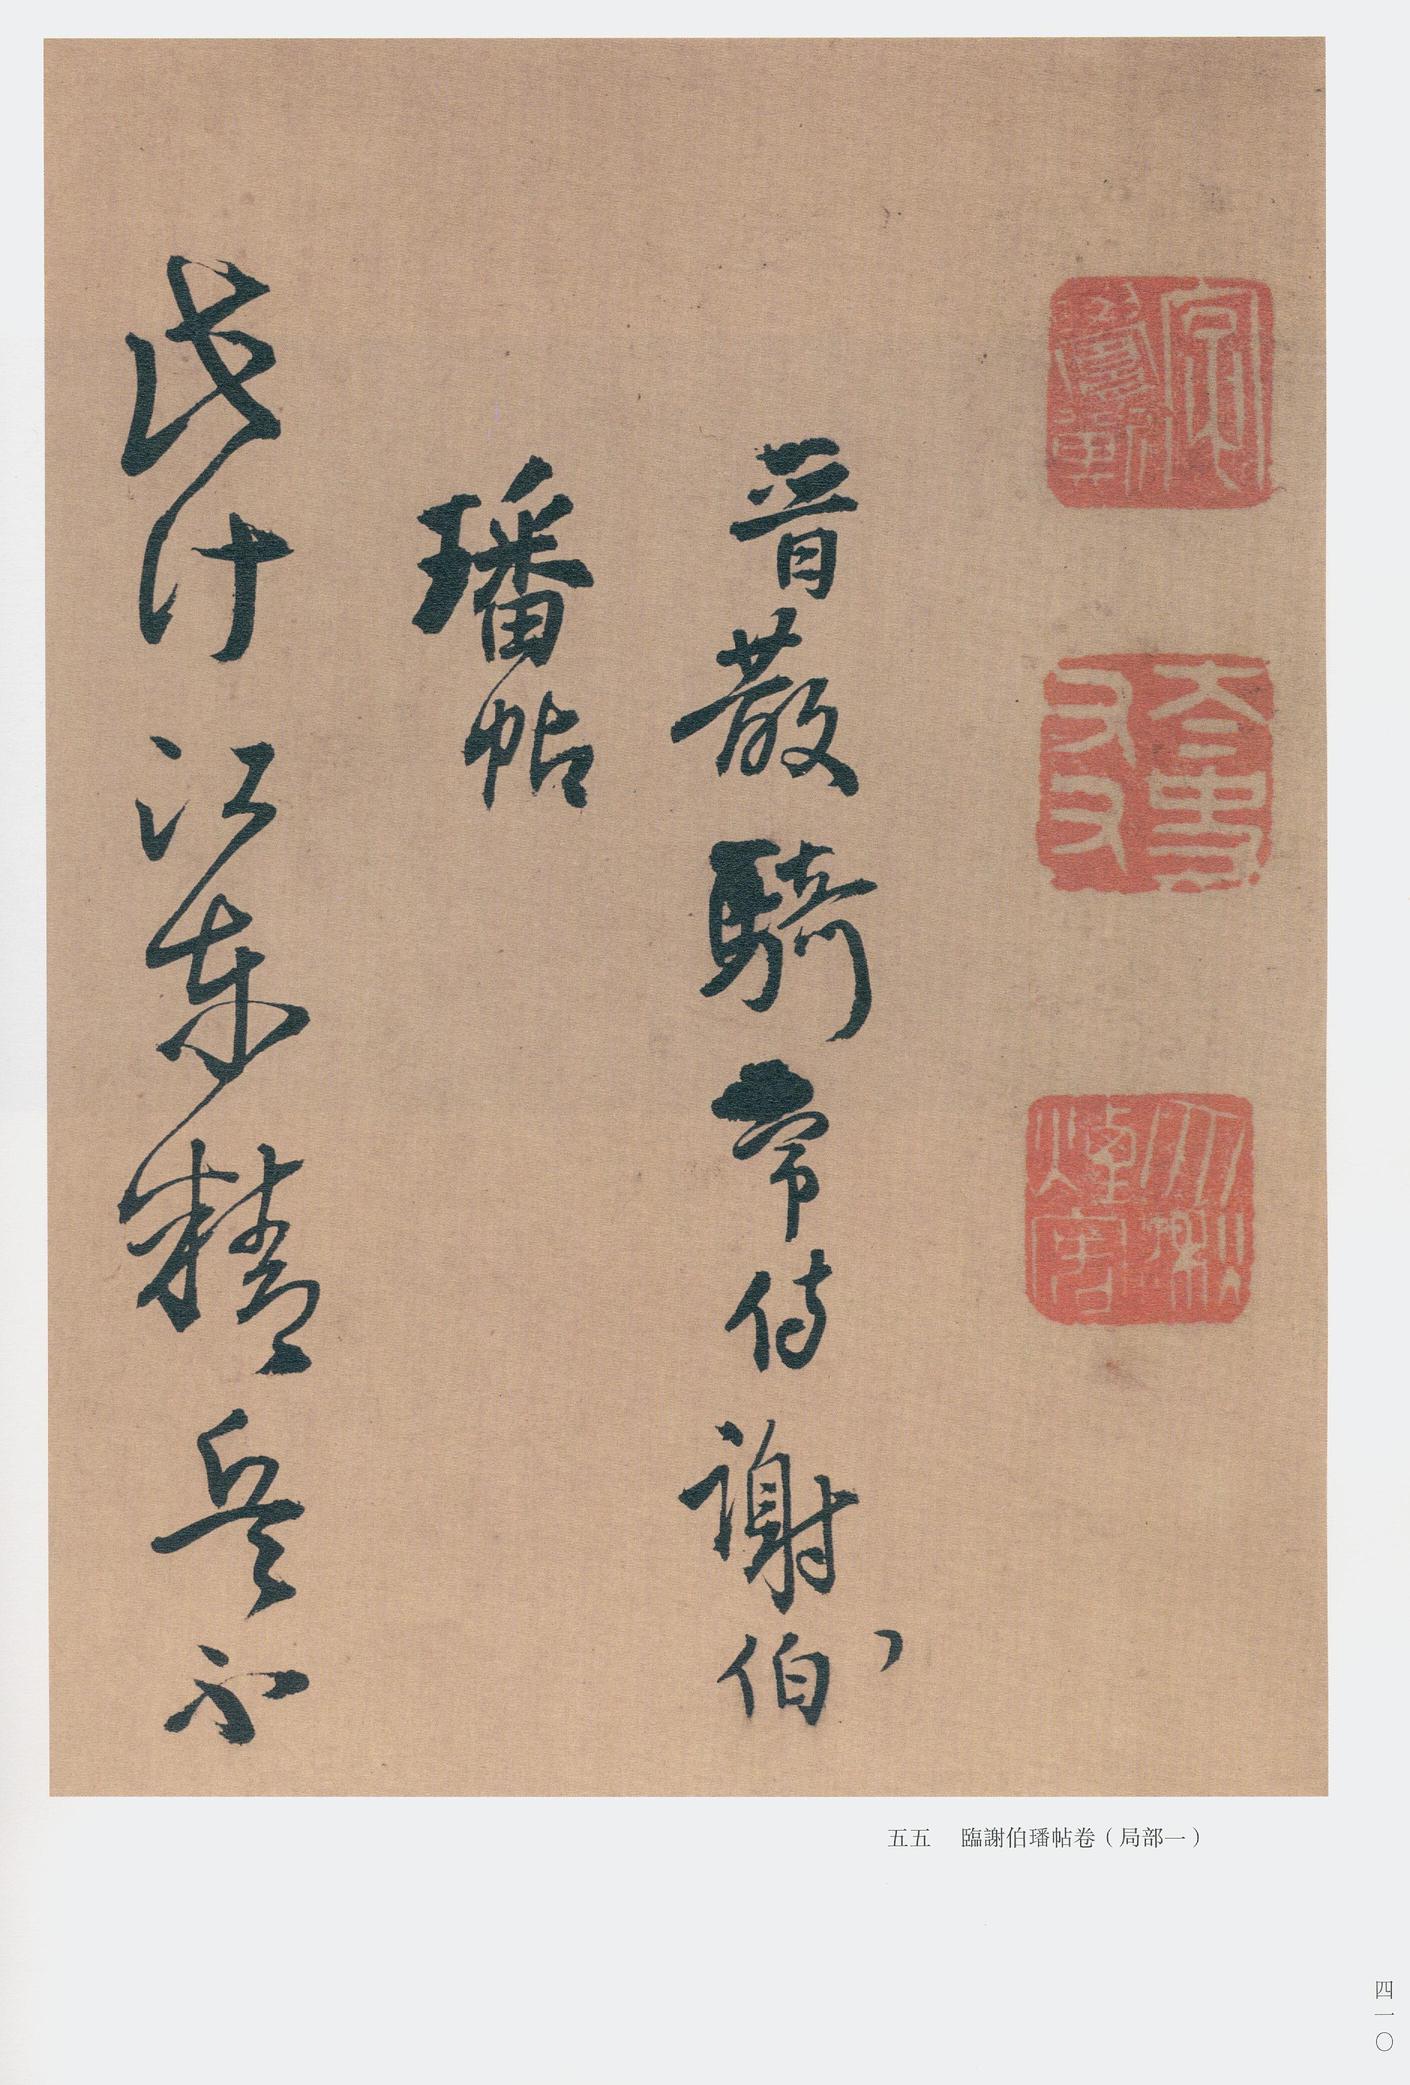 晋散騎常侍謝伯
璠帖
此計江東精兵不
五五 臨謝伯璠帖卷（局部一）
四一〇